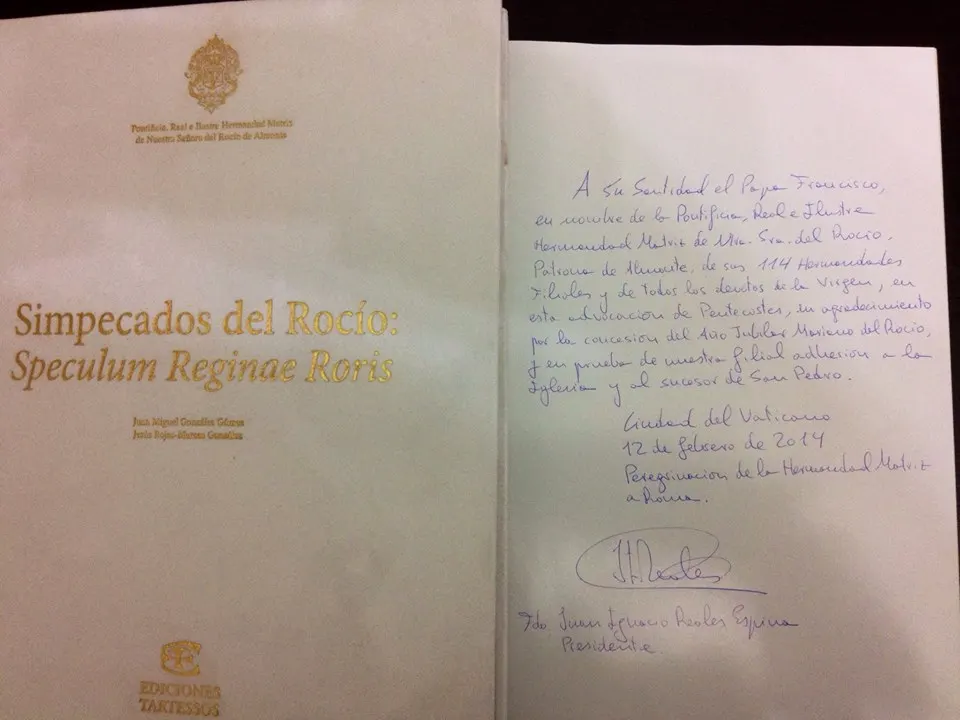 Pontificia, Real e Ilustre Hermandad Matriz
de Nuestra Señora del Rocío de Almonte
Simpecados del Rocío:
Speculum Reginae Roris
Juan Miguel González Gómez
Jesús Rojas-Marcos González
EDICIONES
TARTESSOS
A Su Santidad el Papa Francisco,
en nombre de la Pontificia, Real e Ilustre
Hermandad Matriz de Ntra. Sra. del Rocío,
Patrona de Almonte, de sus 114 Hermandades
Filiales y de todos los devotos de la Virgen, en
esta advocación de Pentecostés, en agradecimiento
por la concesión del Año Jubilar Mariano del Rocío,
y en prueba de nuestra filial adhesión a la
Iglesia y al sucesor de San Pedro.
Ciudad del Vaticano
12 de febrero de 2014
Peregrinación de la Hermandad Matriz
a Roma.
Fdo. Juan Ignacio Reales Espina
Presidente